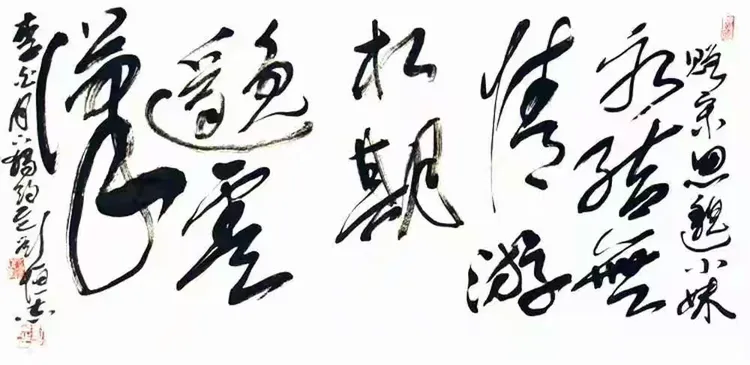 贈京思邈小妹
永結無
情游
相期
邈雲
漢
李白月下獨酌